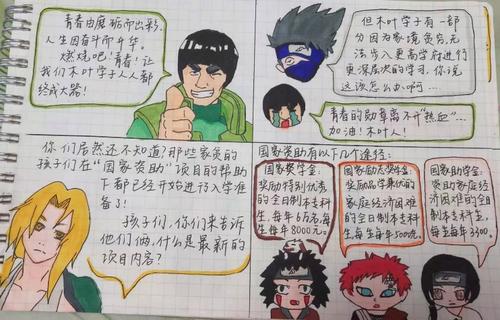 青春由磨砺而出彩,
人生因奋斗而升华。
燃烧吧!青春!让
我们木叶学子人人都
终成大器!
但木叶学子有一部
分因为家境贫穷,无
法步入更高学府进行
更深层次的学习,你说
这该怎么办啊...
青春的勋章离不开“热血”...
加油!木叶人!
你们居然还不知道?那些家贫的
孩子们在“国家资助”项目的帮助
下都已经开始进行入学准
备了!
孩子们,你们来告诉
他们俩,什么是最新的
项目内容?
国家资助有以下几个途径:
国家奖学金:
奖励特别优秀
的全日制本专科
生,每年6万名,每
生每年8000元。
国家励志奖学金:
奖励品学兼优的
家庭经济困难
的全日制本专科
生,每生每年5000元。
国家助学金:
资助家庭经
济困难的全日
制本专科生,
每生每年3300。